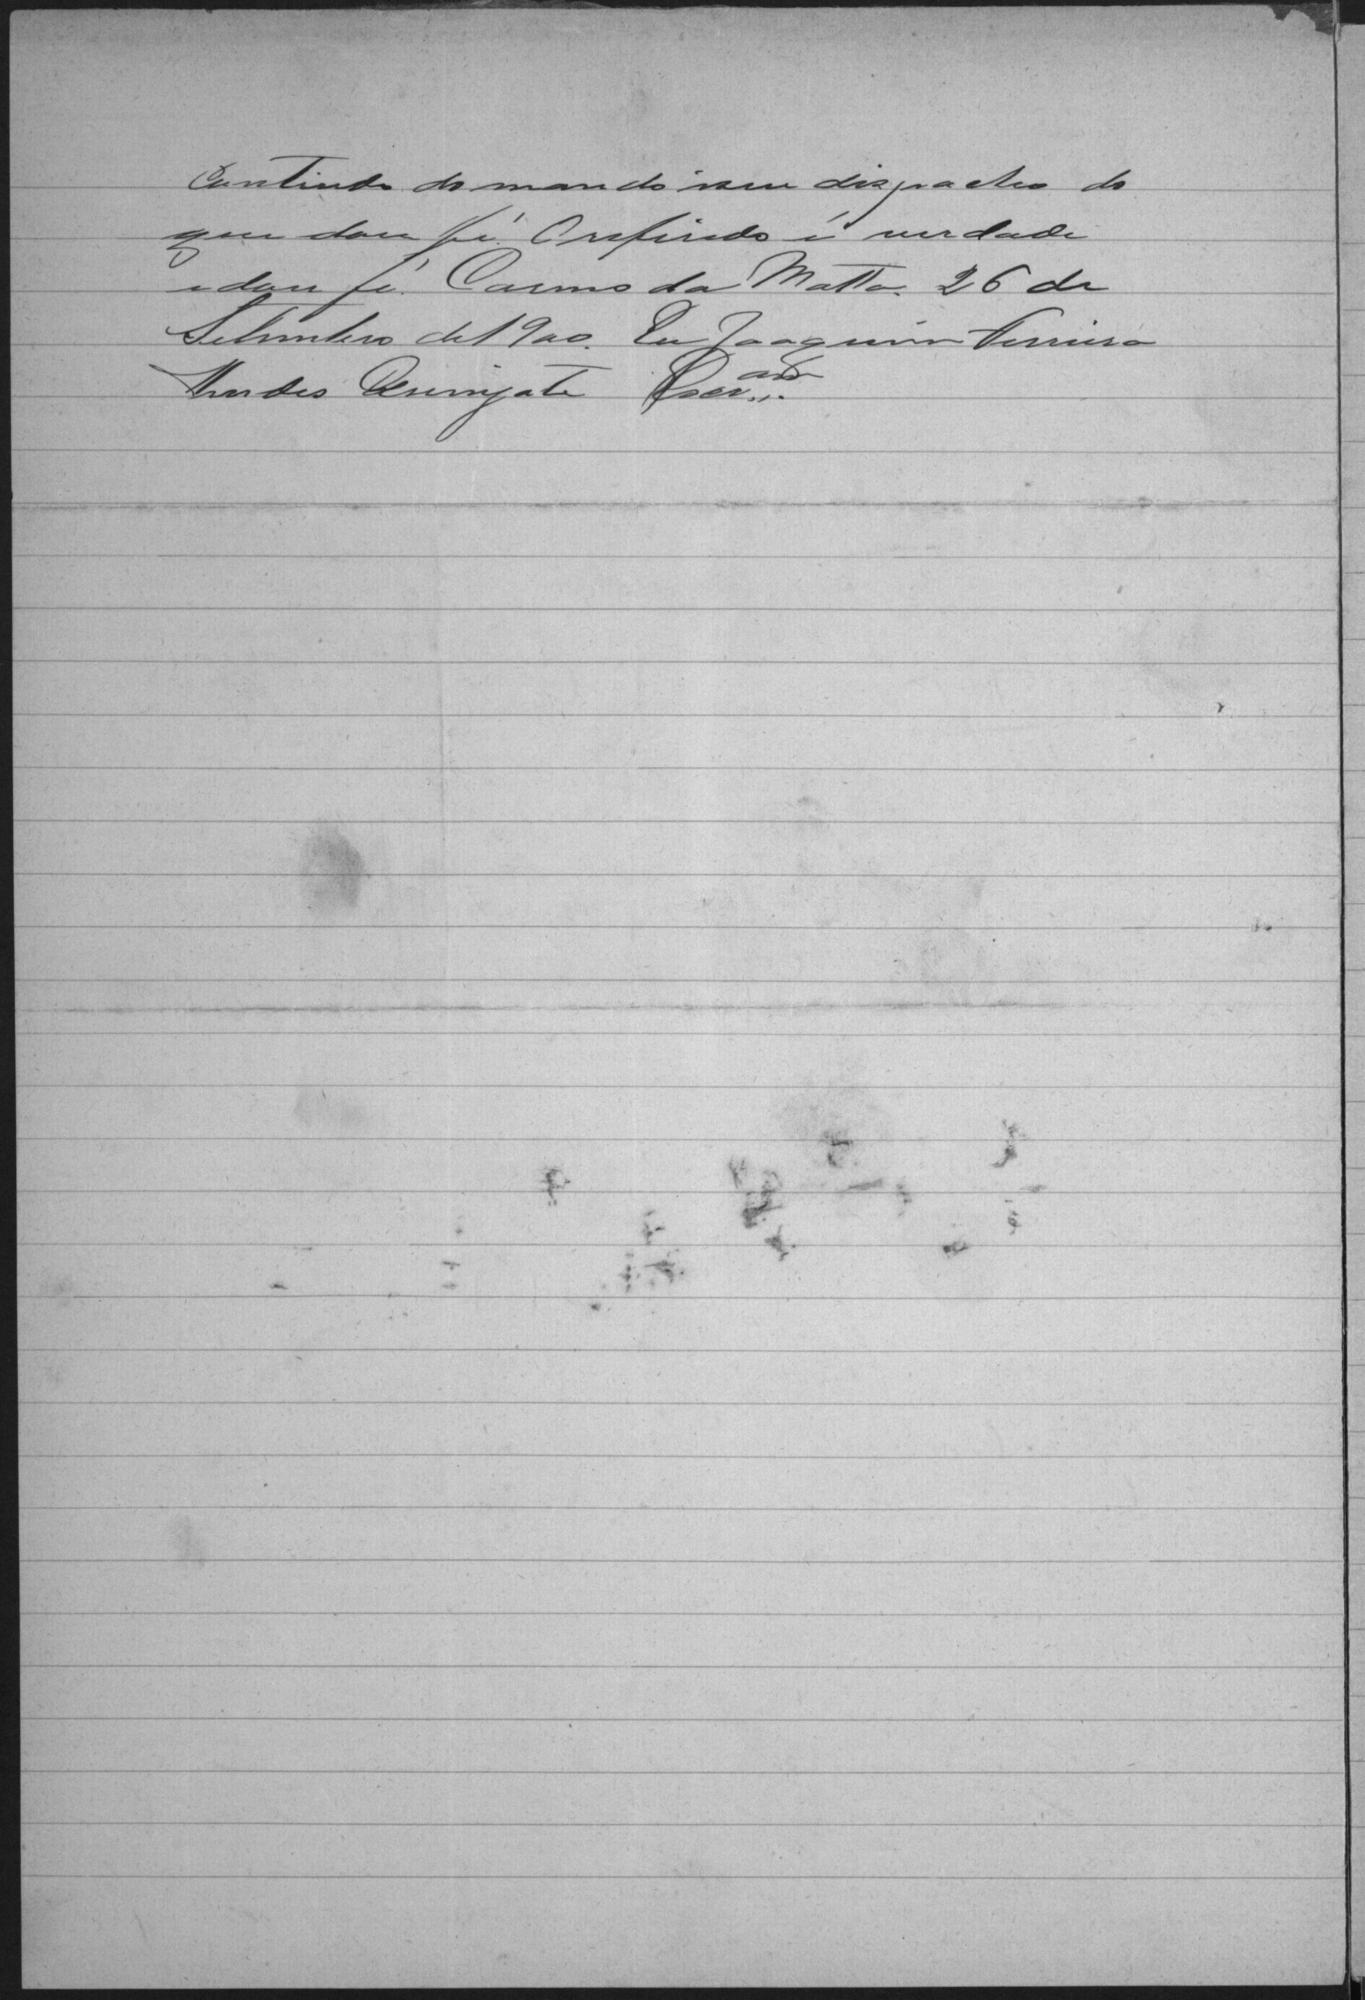 Contindo do mando e seu dispacho do
que dou fé. O referido é verdade
e dou fé. Carmo da Matta. 26 de
Setembro de 1900. Eu Joaquim Ferreira
Mendes